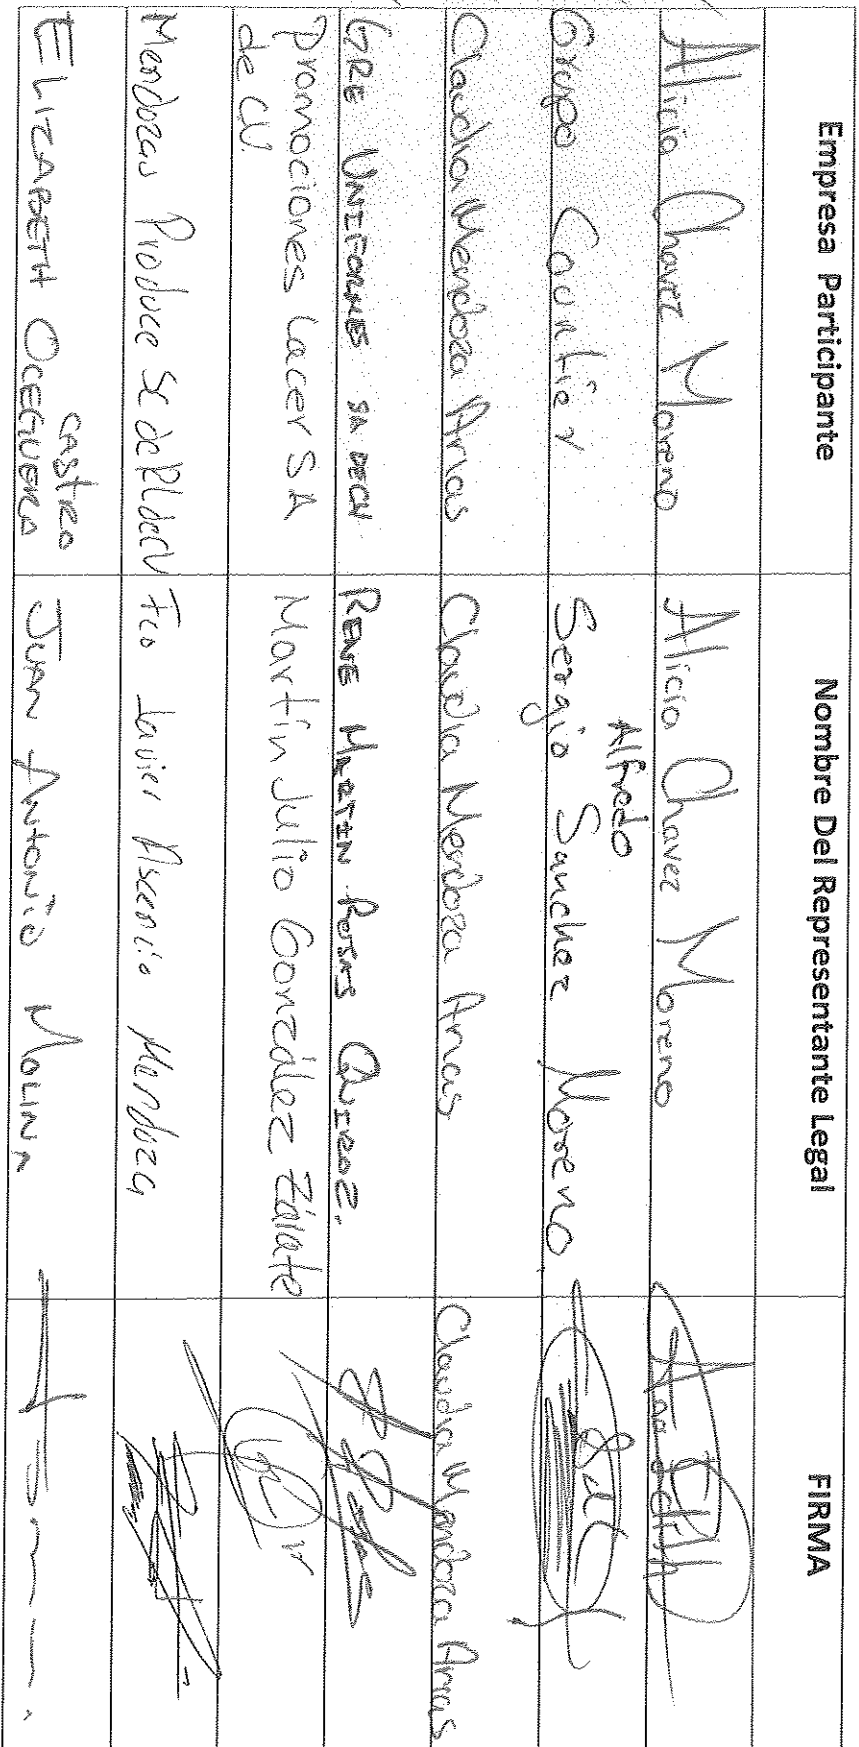 Empresa Participante
Nombre Del Representante Legal
FIRMA
Alicia Chavez Moreno
Alicia Chavez Moreno
Grupo Courtier
Alfredo
Sergio Sanchez Moreno
Claudia Mendoza Arias
Claudia Mendoza Arias
Claudia Mendoza Arias
GRE UNIFORMES SA DECV
RENE MARTIN ROJAS QUIROZ.
Promociones Lacer SA
de CV.
Martín Julio González Zárate
Mendozas Produce SC de RL de CV
Fco Javier Ascencio Mendoza
CASTRO
ELIZABETH OCEGUERA
JUAN ANTONIO MOLINA